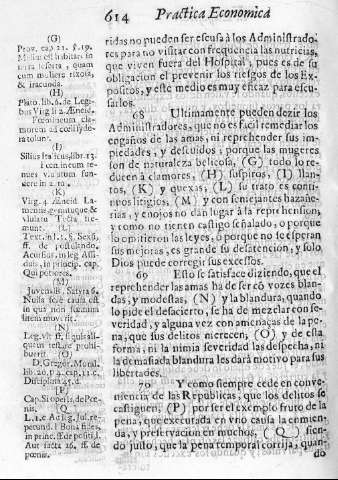 614 Practica Economica
(G)
Prov. cap 21. ℣.19.
Melius est habitare in
terra deserta, quam
cum muliere rixosa,
& iracunda.
(H)
Plato. lib. 6. de Legi-
bus Virgili 2. Æneid.
Foemineum cla-
morem ad con
tolunt.
(I)
Silius Italicus, lib. 13.
(K)
Virg. 4 Æneid La-
mentis gemituque &
Vlulatu Tecta fre-
munt. (L)
Text. in l. 1. §. Sexũ,
ff. de postulando,
Acursius in leg Assi-
duis, in princip. cap.
Qui potiores.
(M)
Juvenalis. Satyra 6.
Nulla fere causa est
in qua non fœmina
litem moverit.
(N)
Leg. vlt. ff. si quis ali-
quem testare prohi-
buerit (O)
D. Gregor. Moral.
lib. 20. p. 4. cap. 11. c.
Disciplina 45. d.
(P)
Cap. Si operis, de Pœ-
nis. Q
ridas no pueden ser escusa à los Administrado-
res para no visitar con frequencia las nutricias,
que viven fuera del Hospital, pues es de su
obligacion el prevenir los riesgos de los Ex-
positos, y este medio es muy eficaz para escu-
sarlos.
68 Ultimamente pueden dezir los
Administradores, que no es facil remediar los
engaños de las amas, ni reprehender sus im-
piedades, y descuidos; porque las mugeres
son de naturaleza belicosa, (G) todo lo re-
ducen à clamores, (H) suspiros, (I) llan-
tos, (K) y quexas, (L) su trato es conti-
nuos litigios, (M) y con semejantes hazañe-
rias, y enojos no dan lugar à la reprehension,
y como no tienen castigo señalado, ò porque
lo omitieron las leyes, ò porque no se esperan
sus mejoras, es grande su desatencion, y solo
Dios puede corregir sus excessos.
69 Esto se satisface diziendo, que el
reprehender las amas ha de ser cõ vozes blan-
das, y modestas, (N) y la blandura, quando
lo pide el desacierto, se ha de mezclar con se-
veridad, y alguna vez con amenaças de la pe-
na, que sus delitos merecen, (O) y de esta
forma, ni la nimia severidad las despecha, ni
la demasiada blandura les darà motivo para sus
libertades.
70 Y como siempre cede en conve-
niencia de las Republicas, que los delitos se
castiguen, (P) por ser el exemplo fruto de la
pena, que executada en vno causa la enmien-
da, y preservacion en muchos, (Q) sien-
do justo, que la pena temporal corrija, quan-
do